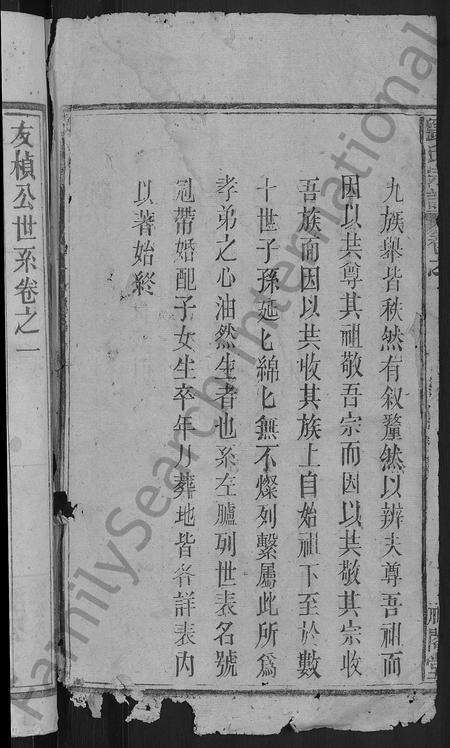 九族舉皆秩然有叙釐然以辨夫尊吾祖而
因以共尊其祖敬吾宗而因以共敬其宗收
吾族而因以共收其族上自始祖下至於數
十世子孫延匕綿匕無不燦列繫屬此所爲
孝弟之心油然生者也系左臚列世表名號
冠帶婚配子女生卒年月葬地皆各詳表內
以著始終
友楨公世系卷之一
FamilySearch International